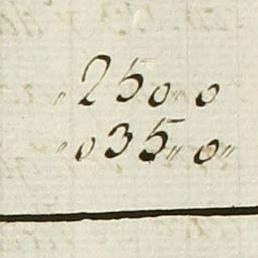 „250„0
„035„0„